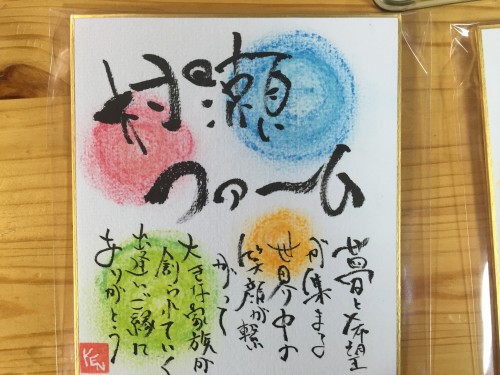 ファーム
夢と希望
が集まる
世界中の
笑顔が繋
がって
大きな家族が
創られていく
出逢いご縁に
ありがとう
KEN